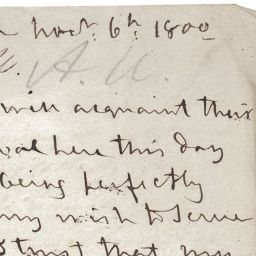 Novr. 6th. 1800
A. U.
will acquaint their
here this day
being perfectly
my wish to serve
trust that my